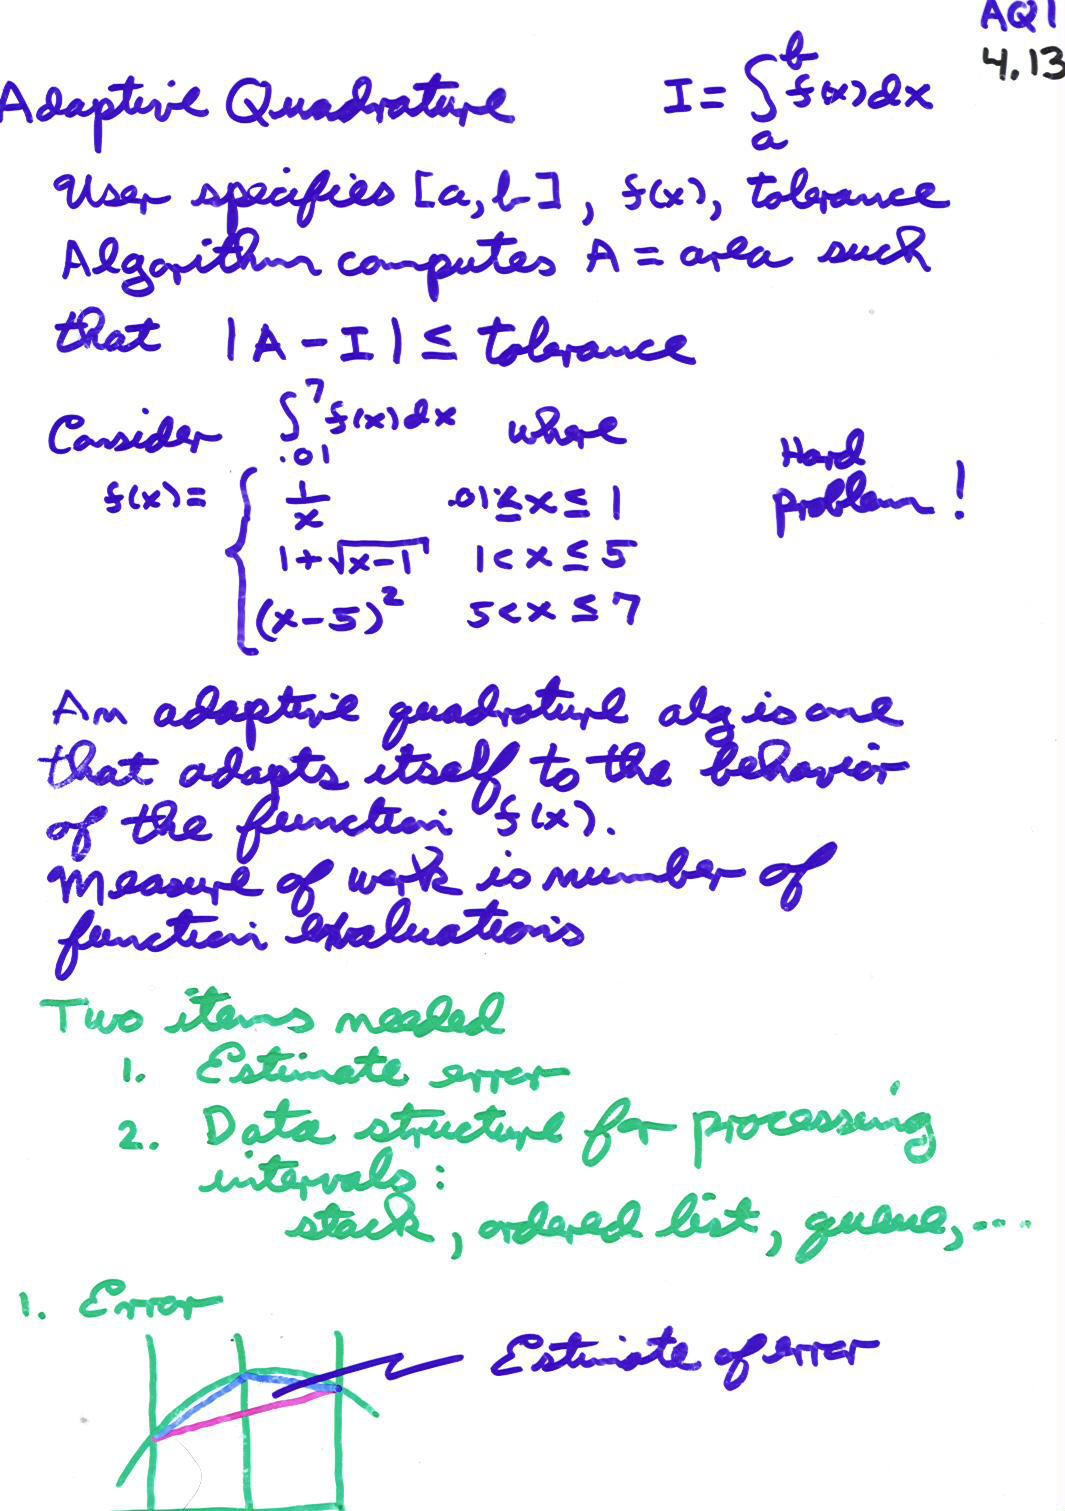 AQ1
4.13
Adaptive Quadrature I = ∫_a^b f(x)dx
User specifies [a,b], f(x), tolerance
Algorithm computes A = area such
that |A - I| ≤ tolerance
Consider ∫_.01^7 f(x)dx where
Hard
problem!
f(x) = { 1/x .01 ≤ x ≤ 1
1+√(x-1) 1 < x ≤ 5
(x-5)^2 5 < x ≤ 7
An adaptive quadrature alg is one
that adapts itself to the behavior
of the function f(x).
Measure of work is number of
function evaluations
Two items needed
1. Estimate error
2. Data structure for processing
intervals:
stack, ordered list, queue, ...
1. Error
Estimate of error